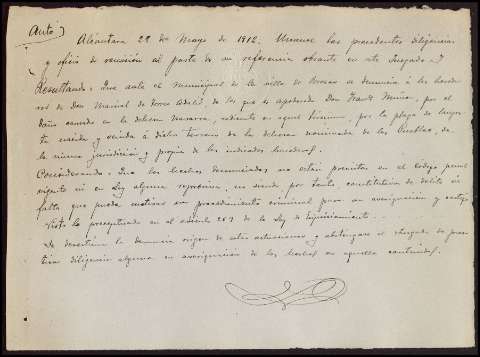 Auto)
Alcántara 29 de Mayo de 1912. Unanse las precedentes diligencias
y oficio de remisión al parte de su referencia obrante en este Juzgado y
Resultando: Que ante el Municipal de la villa de Brozas se denuncia á los herede-
ros de Don Marcial de Torres Cabrera, de los que es apoderado Don Frank Muñoz, por el
daño causado en la dehesa Navarra, radicante en aquel término, por la plaga de langos-
ta nacida y venida á dicho terreno de la dehesa nominada de las Pueblas, de
la misma jurisdicción y propia de los indicados herederos.
Considerando: Que los hechos denunciados no están previstos en el Código penal
vigente ni en Ley alguna represiva, no siendo, por tanto, constitutivos de delito ni
falta que pueda motivar un procedimiento criminal para su averiguación y castigo
Visto lo preceptuado en el artículo 269 de la Ley de Enjuiciamiento . . .
Se desestima la denuncia origen de estas actuaciones y absténgase el Juzgado de prac-
ticar diligencia alguna en averiguación de los hechos en aquella contenidos.